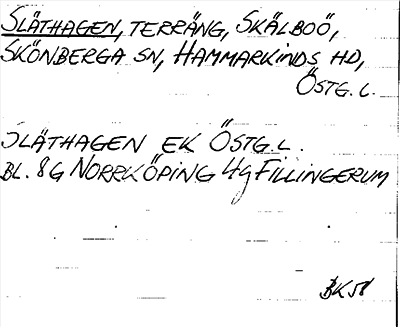 SLÄTHAGEN, TERRÄNG, SKÄLBOÖ,
SKÖNBERGA SN, HAMMARKINDS HD,
ÖSTG. L.
SLÄTHAGEN EK ÖSTG. L.
BL. 8G NORRKÖPING 4g FILLINGERUM
BK58